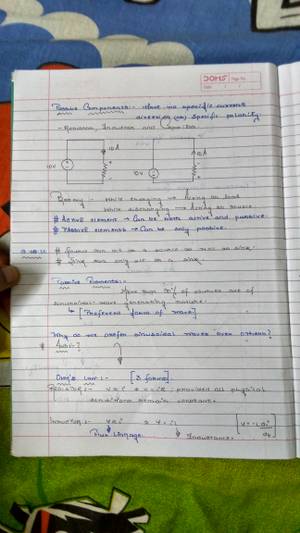 DOMS
Passive Components:- Have no specific current
direction (or) specific polarity.
- Resistor, Inductor and Capacitor
10A
10A
10V
10V
Battery:- while charging → Acting as load
while discharging → Acting as source.
# Active element → Can be both active and passive
# Passive elements → Can be only passive.
# Source can act as a source as well as sink.
# Sink can only act as a sink.
Passive Elements:-
More than 90% of sources are of
sinusoidal wave generating nature.
↳ [Preferred form of wave]
Why do we prefer sinusoidal waves over others?
* Ans:-
Ohm's Law:- [3 forms]
Resistor:- V ∝ i ⇒ v = iR; provided all physical
conditions remain constant.
Inductor:- Ψ ∝ i ⇒ Ψ = Li
Flux Linkage
Inductance.
V = -L di/dt